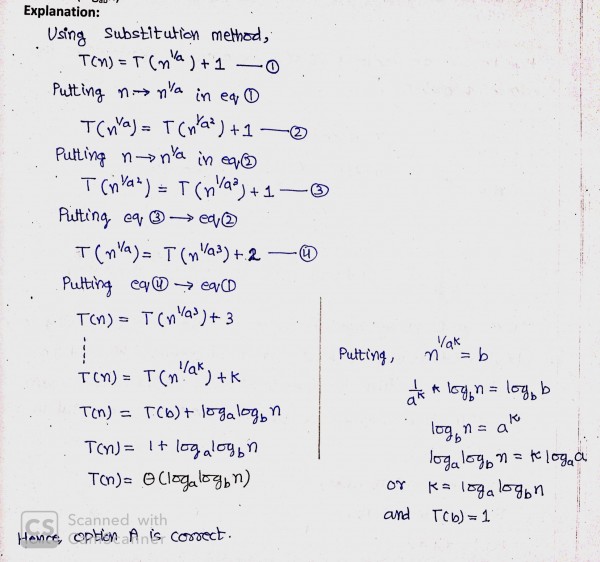 Explanation:
Using Substitution method,
T(n) = T(n^1/a) + 1 —①
Putting n → n^1/a in eq ①
T(n^1/a) = T(n^1/a²) + 1 —②
Putting n → n^1/a in eq ②
T(n^1/a²) = T(n^1/a³) + 1 —③
Putting eq ③ → eq ②
T(n^1/a) = T(n^1/a³) + 2 —④
Putting eq ④ → eq ①
T(n) = T(n^1/a³) + 3
T(n) = T(n^1/a^k) + k
T(n) = T(b) + log_a log_b n
T(n) = 1 + log_a log_b n
T(n) = Θ(log_a log_b n)
Putting, n^1/a^k = b
1/a^k * log_b n = log_b b
log_b n = a^k
log_a log_b n = k log_a a
or k = log_a log_b n
and T(b) = 1
CS Scanned with
CamScanner
Hence, option A is correct.